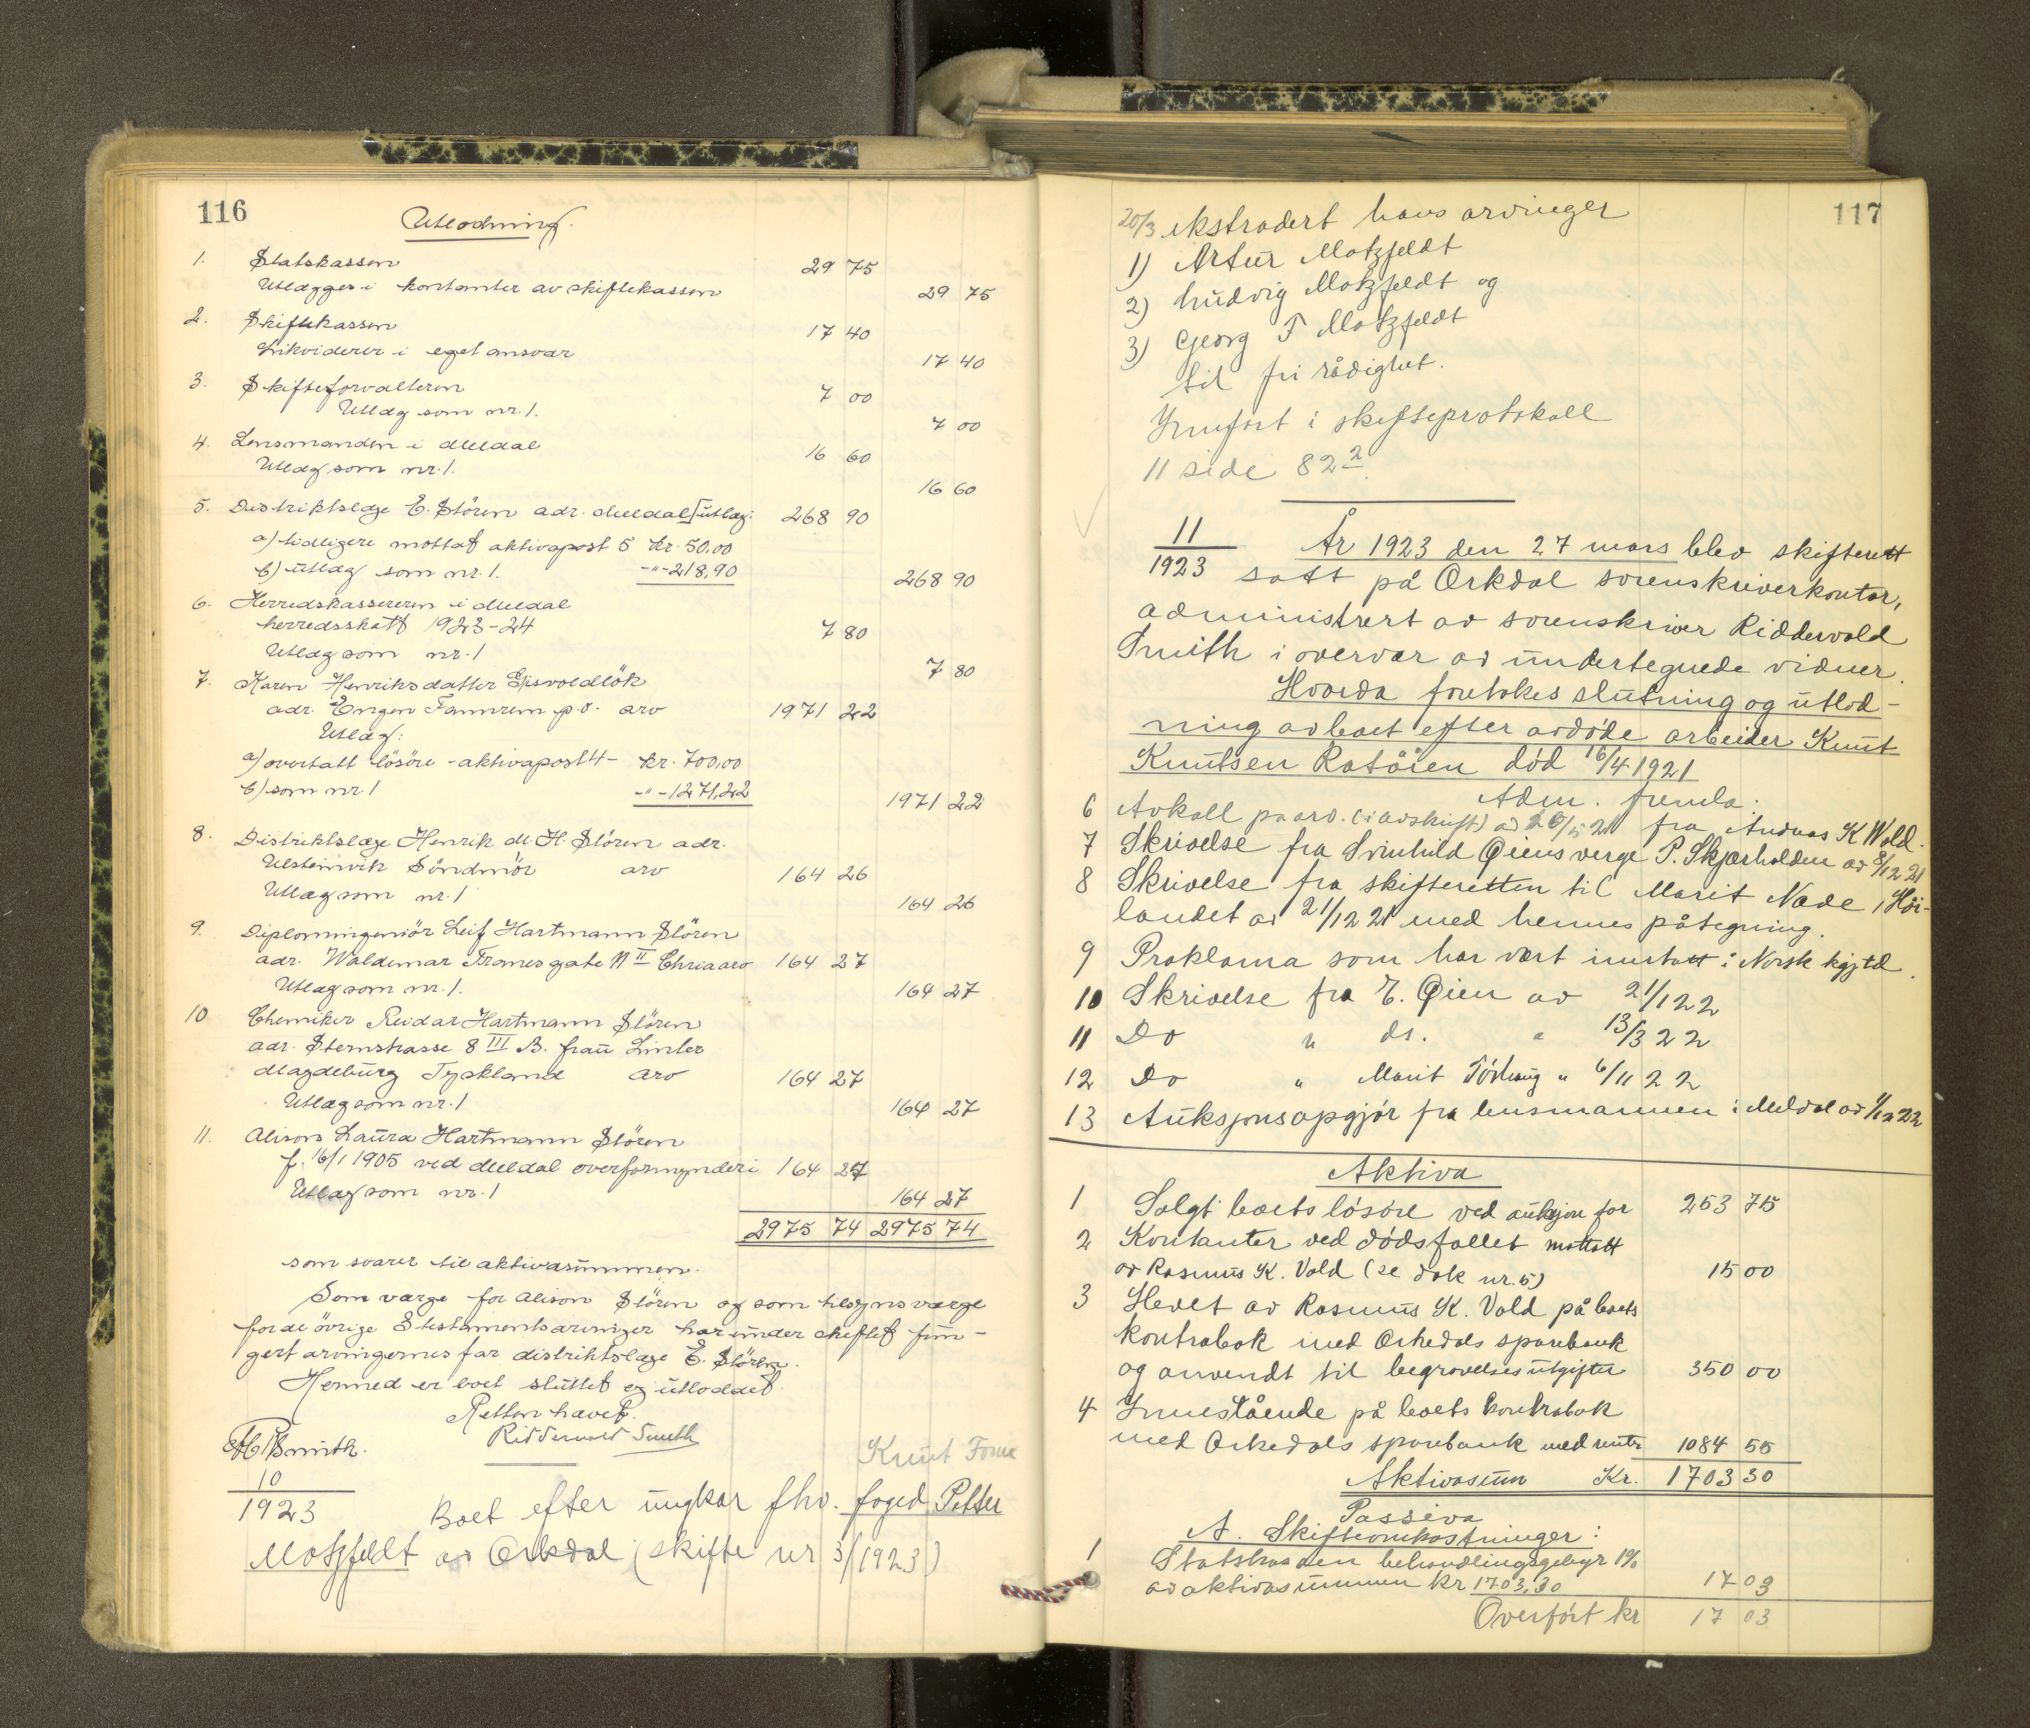 116
Utlodning.
1. Statskassen 29 75
Utlægges i kontanter av skiftekassen 29 75
2. Skiftekassen 17 40
Likviderer i eget ansvar 17 40
3. Skifteforvalteren 7 00
Utlæg som nr. 1. 7 00
4. Lensmanden i Meldal 16 60
Utlæg som nr. 1. 16 60
5. Distriktslæge E. Stören adr. Meldal utlæg: 268 90
a) tidligere mottat aktivapost 5 kr. 50,00
b) utlæg som nr. 1. -"- 218,90 268 90
6. Herredskassereren i Meldal
herredsskatt 1923-24 7 80
Utlæg som nr. 1 7 80
7. Karen Henriksdatter Gjsvoldlök
adr. Engen Fannrem p.o. arv 1971 22
Utlæg:
a) overtatt lösöre - aktivapost 4 - kr. 700,00
b) som nr. 1 -"- 1271,22 1971 22
8. Distriktslæge Henrik M. H. Stören adr.
Ulsteinvik Söndmör arv 164 26
Utlæg som nr. 1 164 26
9. Diplomingeniör Leif Hartmann Stören
adr. Waldemar Tranes gate 11 II Chria arv 164 27
Utlæg som nr. 1. 164 27
10 Chemiker Reidar Hartmann Stören
adr. Sternstrasse 8 III B. frau Linler
Magdeburg Tyskland arv 164 27
Utlæg som nr. 1 164 27
11. Alison Laura Hartmann Stören
f. 16/1 1905 ved Meldal overformynderi 164 27
Utlæg som nr. 1 164 27
2975 74 2975 74
som svarer til aktivasummen.
Som værge for Alison Stören og som tilsynsværge
for de övrige 3 testamentsarvinger har under skiftet fun-
gert arvingernes far distriktslæge E. Stören.
Hermed er boet sluttet og utloddet.
Retten hævet.
Riddervold Smith
Smith. Knut
10
1923 Boet efter ungkar fhv. foged Petter
Motzfeldt av Orkdal (skifte nr 3/1923)
117
20/3 ekstradert hans arvinger
1) Artur Motzfeldt
2) Ludvig Motzfeldt og
3) Georg F Motzfeldt
til fri rådighet.
Innført i skifteprotokoll
11 side 82 2
11
1923
År 1923 den 27 mars blev skifterett
satt på Orkdal sorenskriverkontor,
administrert av sorenskriver Riddervold
Smith i overvær av undertegnede vidner.
Hvorda foretokes slutning og utlod-
ning av boet efter avdøde arbeider Knut
Knutsen Ratåien død 16/4 1921
Adm. fremla.
6 Avkall på arv. (i avskrift) av 26/5 21 fra Andreas K Wold.
7 Skrivelse fra Svinhild Øiens verge P. Skjærholden av 8/12 21
8 Skrivelse fra skifteretten til Marit Næve, Høi-
landet av 21/12 21 med hennes påtegning.
9 Proklama som har vært inntatt i Norsk kgjtd.
10 Skrivelse fra E. Øien av 21/1 22
11 Do " do. " 13/3 22
12 Do " Marit " 6/11 22
13 Auksjonsopgjør fra lensmannen i Meldal av 1/12 22
Aktiva
1 Solgt boets løsøre ved auksjon for 253 75
2 Kontanter ved dødsfallet mottatt
av Rasmus K. Vold (se dok nr. 5) 15 00
3 Hevet av Rasmus K. Vold på boets
kontrabok med Orkedals sparebank
og anvendt til begravelsesutgifter 350 00
4 Innestående på boets kontrabok
med Orkedals sparebank med renter 1084 55
Aktivasum Kr. 1703 30
Passiva
A. Skifteomkostninger:
1 Statskassen behandlingsgebyr 1%
av aktivasummen kr 1703,30 17 03
Overført kr 17 03